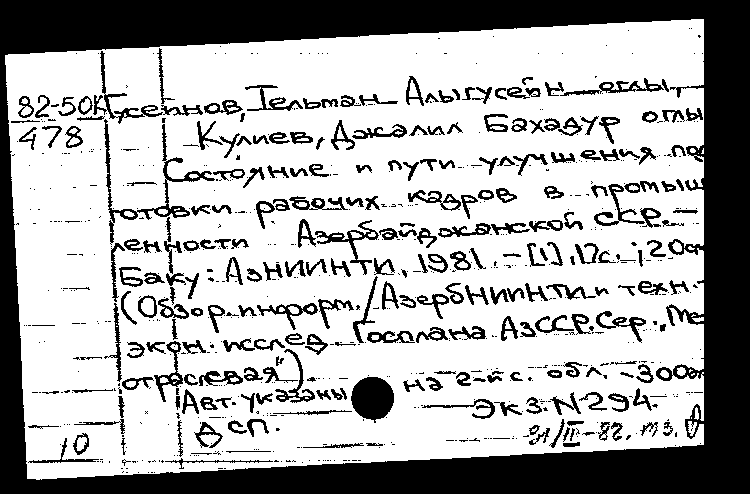 82-50К Гусейнов, Тельман Алыгусейн оглы,
478 Кулиев, Джалил Бахадур оглы
Состояние и пути улучшения под
готовки рабочих кадров в промыш
ленности Азербайджанской ССР. —
Баку: АзНИИНТИ, 1981. – [1], 17с. ; 20см
(Обзор. информ. / АзербНИИНТИ и техн.-
экон. исслед. Госплана АзССР. Сер. "Ме
отраслевая").
Авт. указаны на 2-й с. обл. – 300экз
Экз. N 294.
ДСП.
10 31/III-82. тз.